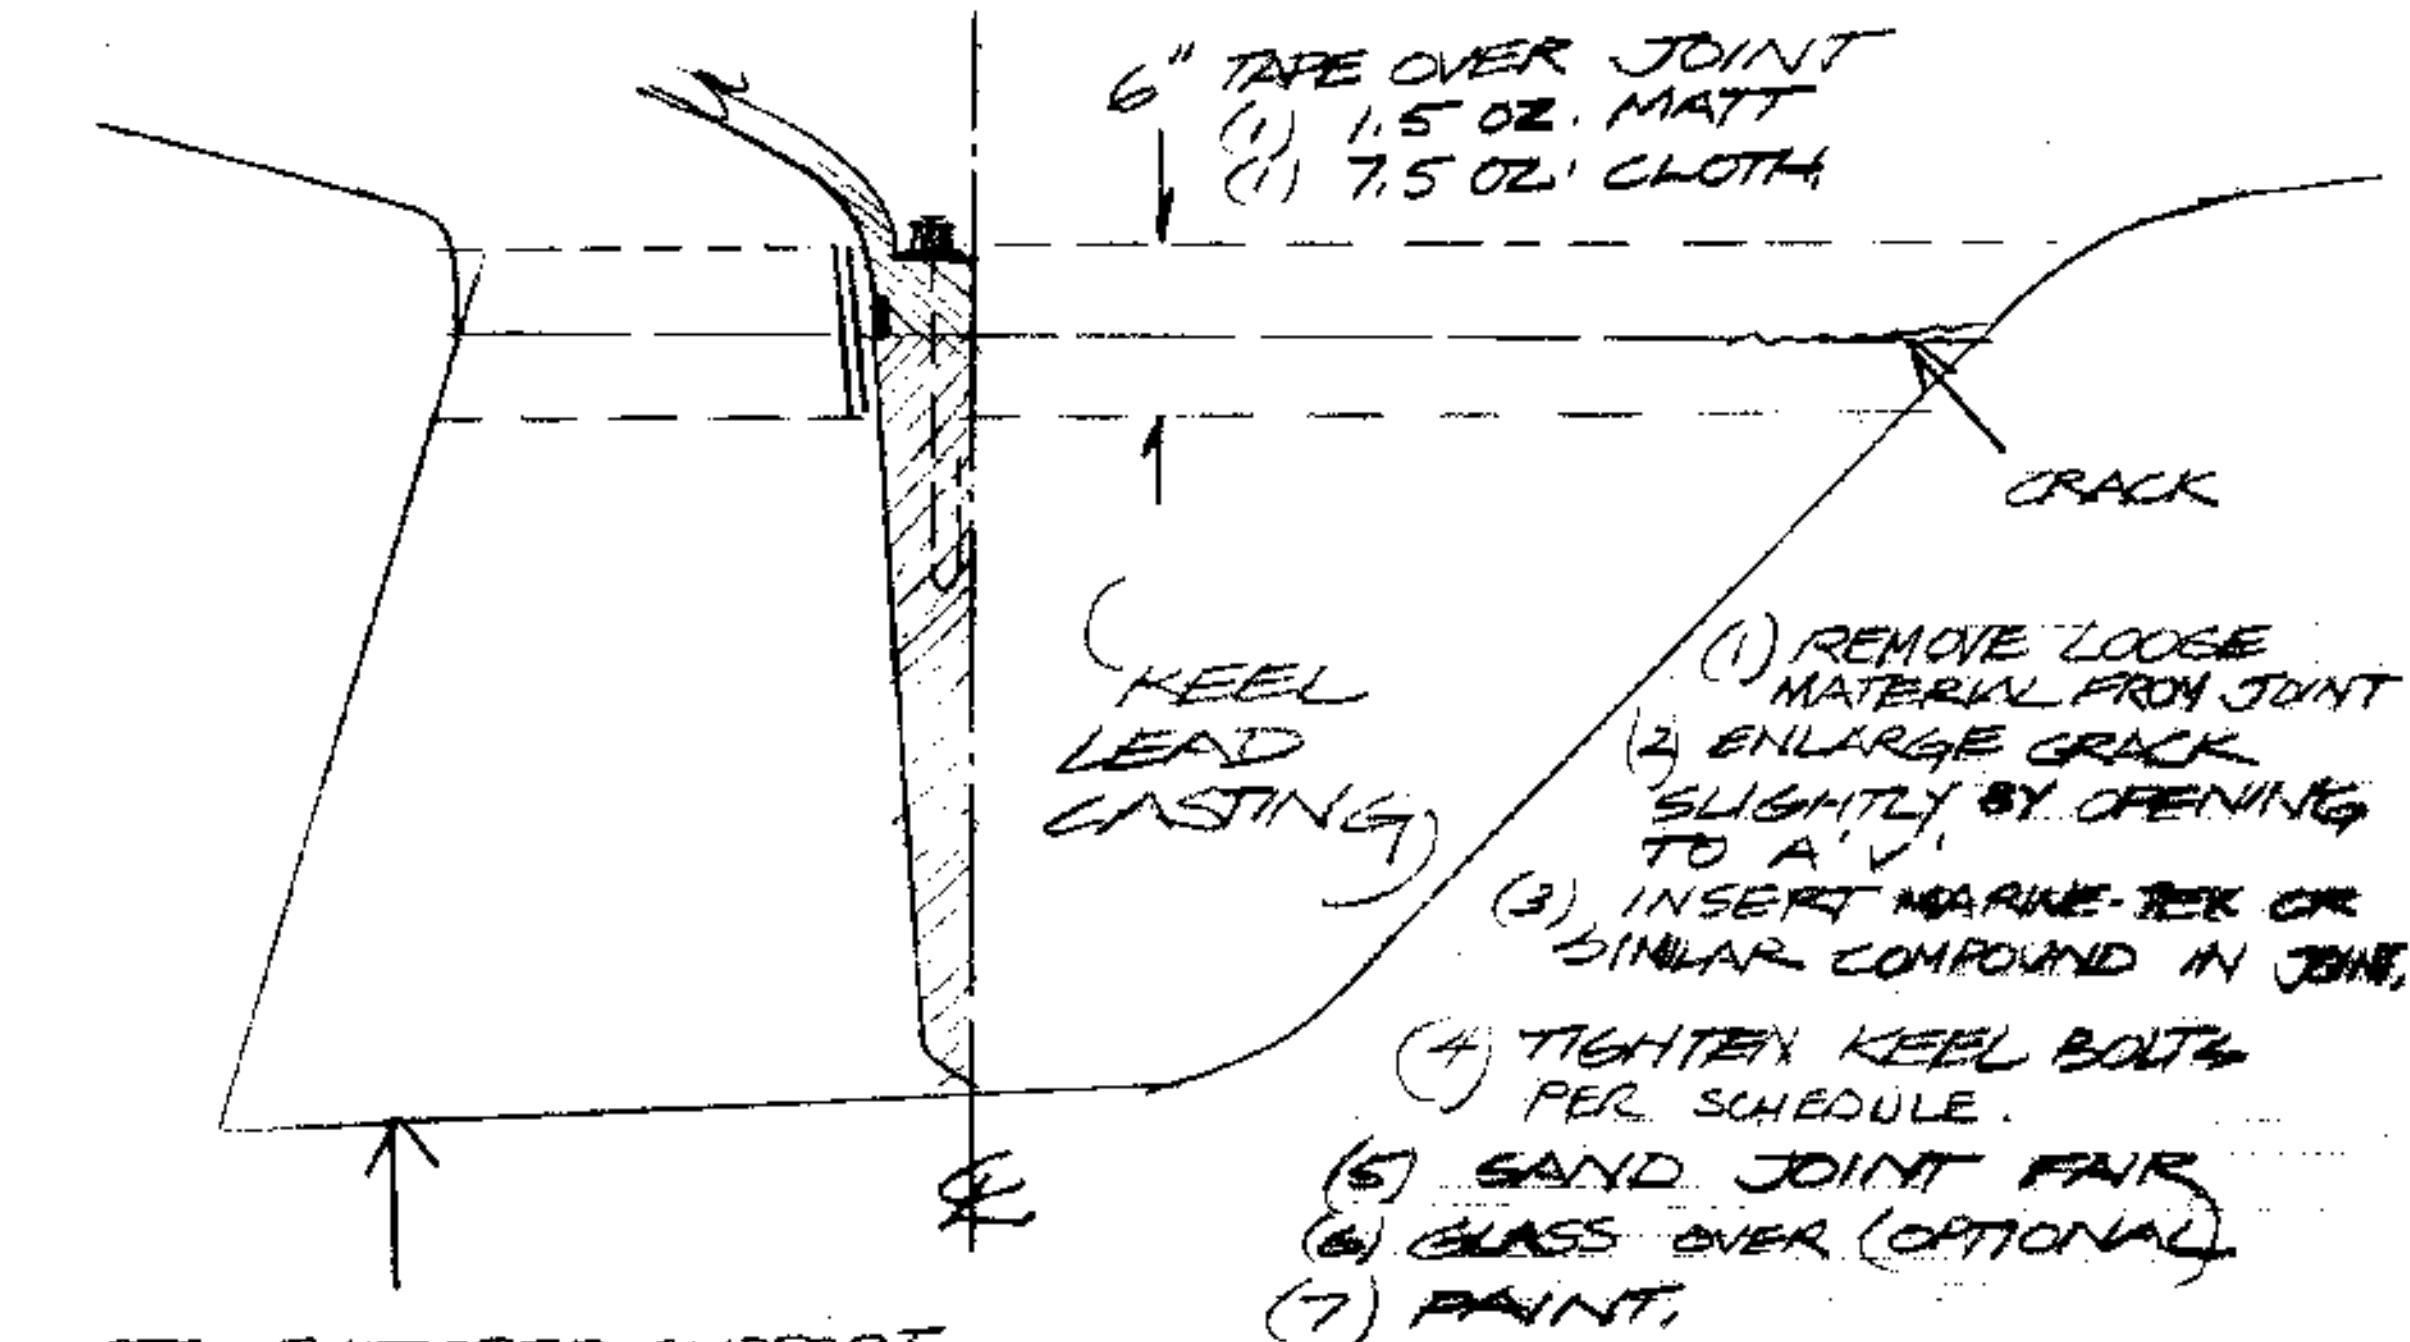 6" TAPE OVER JOINT
(1) 1.5 OZ. MATT
(1) 7.5 OZ. CLOTH
CRACK
KEEL
LEAD
CASTING
(1) REMOVE LOOSE
MATERIAL FROM JOINT
(2) ENLARGE CRACK
SLIGHTLY BY OPENING
TO A 'V'
(3) INSERT MARINE-TEX OR
SIMILAR COMPOUND IN JOINT.
(4) TIGHTEN KEEL BOLTS
PER SCHEDULE.
(5) SAND JOINT FAIR
(6) GLASS OVER (OPTIONAL)
(7) PAINT.
℄